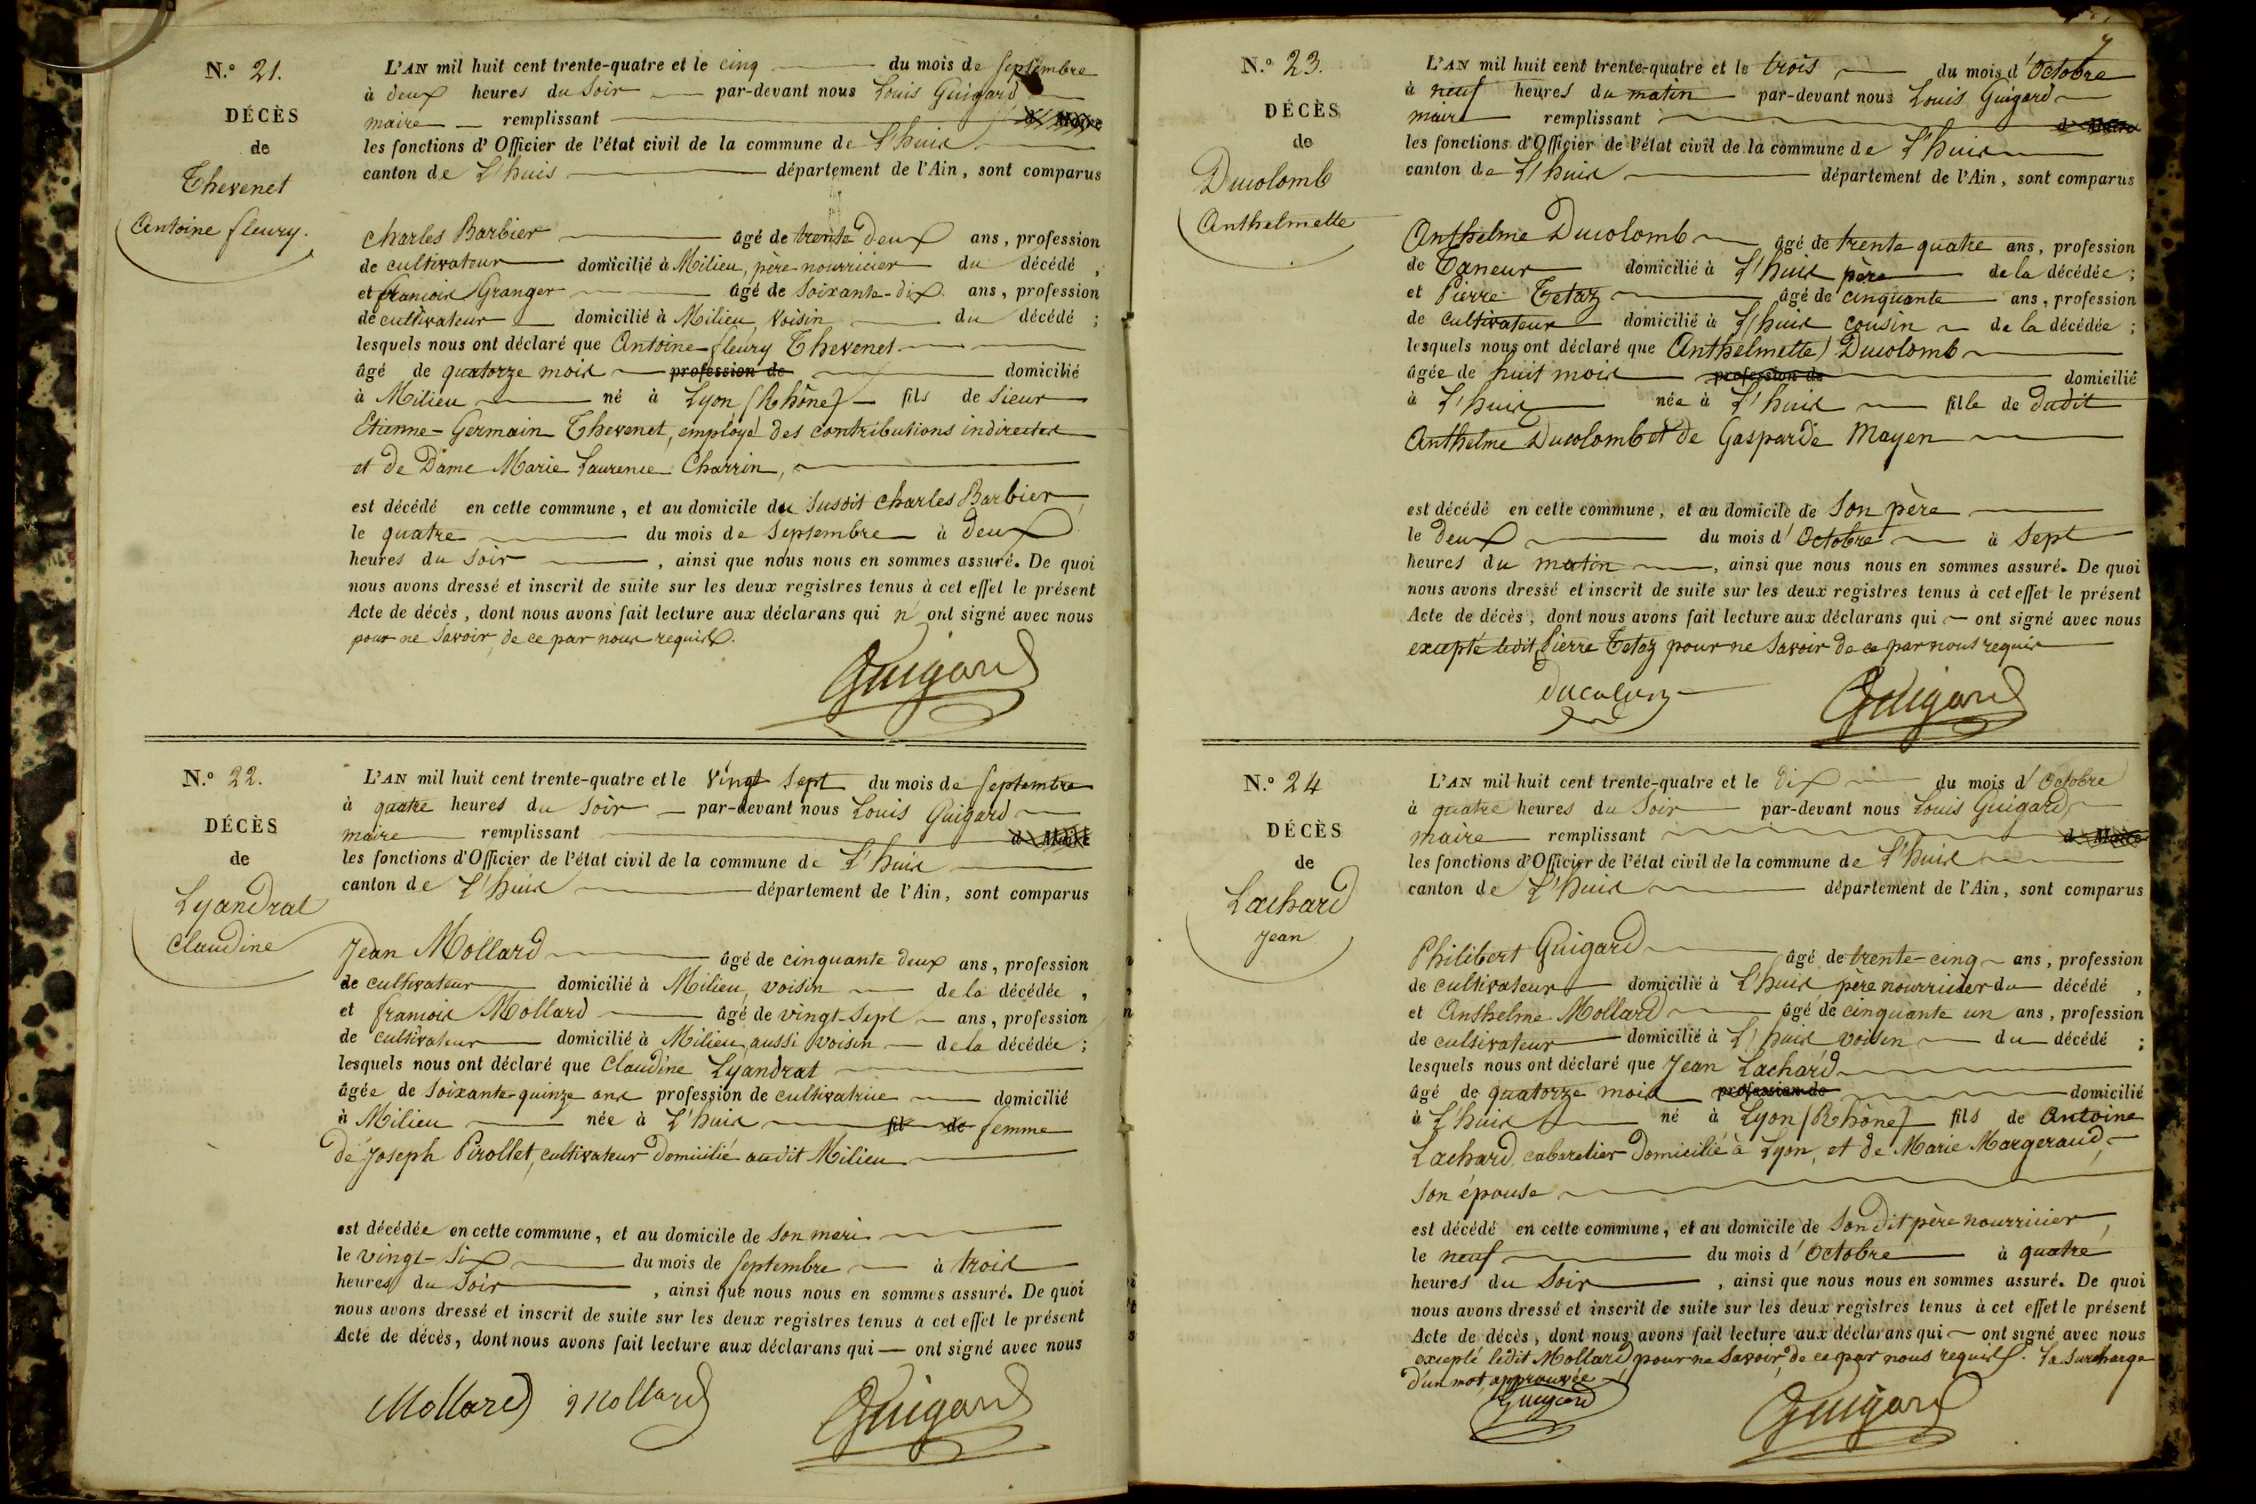 N.° 21.
DÉCÈS
de
Thevenet
Antoine fleury.
L'AN mil huit cent trente-quatre et le cinq du mois de septembre
à deux heures du Soir par-devant nous Louis Guigard
maire remplissant d Maire
les fonctions d'Officier de l'état civil de la commune de L'huis
canton de L'huis département de l'Ain, sont comparus
Charles Barbier âgé de trente deux ans, profession
de cultivateur domicilié à Milieu, père nourricier du décédé,
et francois Granger âgé de Soixante-dix ans, profession
de cultivateur domicilié à Milieu, Voisin du décédé;
lesquels nous ont déclaré que Antoine fleury Thevenet
âgé de quatorze mois profession de domicilié
à Milieu né à Lyon (Rhône) fils de Sieur
Etienne-Germain Thevenet, employé des contributions indirectes
et de Dame Marie Laurence Charrin,
est décédé en cette commune, et au domicile du Susdit Charles Barbier
le quatre du mois de Septembre à deux
heures du Soir, ainsi que nous nous en sommes assuré. De quoi
nous avons dressé et inscrit de suite sur les deux registres tenus à cet effet le présent
Acte de décès, dont nous avons fait lecture aux déclarans qui n'ont signé avec nous
pour ne Savoir, de ce par nous requis.
Guigard
N.° 22.
DÉCÈS
de
Lyandrat
Claudine
L'AN mil huit cent trente-quatre et le Vingt Sept du mois de Septembre
à quatre heures du Soir par-devant nous Louis Guigard
maire remplissant d Maire
les fonctions d'Officier de l'état civil de la commune de L'huis
canton de L'huis département de l'Ain, sont comparus
Jean Mollard âgé de cinquante deux ans, profession
de cultivateur domicilié à Milieu, voisin de la décédée,
et francois Mollard âgé de vingt-Sept ans, profession
de cultivateur domicilié à Milieu, aussi voisin de la décédée;
lesquels nous ont déclaré que Claudine Lyandrat
âgée de Soixante-quinze ans profession de cultivatrice domicilié
à Milieu née à L'huis fil de femme
de Joseph Pirollet, cultivateur domicilié audit Milieu
est décédée en cette commune, et au domicile de Son mari
le vingt-Six du mois de Septembre à trois
heures du Soir, ainsi que nous nous en sommes assuré. De quoi
nous avons dressé et inscrit de suite sur les deux registres tenus à cet effet le présent
Acte de décès, dont nous avons fait lecture aux déclarans qui ont signé avec nous
Mollard Mollard Guigard
7
N.° 23.
DÉCÈS
de
Ducolomb
Anthelmette
L'AN mil huit cent trente-quatre et le trois du mois d'Octobre
à neuf heures du matin par-devant nous Louis Guigard
maire remplissant d Maire
les fonctions d'Officier de l'état civil de la commune de L'huis
canton de L'huis département de l'Ain, sont comparus
Anthelme Ducolomb âgé de trente quatre ans, profession
de Taneur domicilié à L'huis père de la décédée;
et Pierre Tetaz âgé de cinquante ans, profession
de cultivateur domicilié à L'huis cousin de la décédée;
lesquels nous ont déclaré que Anthelmette Ducolomb
âgée de huit mois profession de domicilié
à L'huis née à L'huis fille de dudit
Anthelme Ducolomb et de Gasparde Mayen
est décédé en cette commune, et au domicile de Son père
le deux du mois d'Octobre à Sept
heures du matin, ainsi que nous nous en sommes assuré. De quoi
nous avons dressé et inscrit de suite sur les deux registres tenus à cet effet le présent
Acte de décès, dont nous avons fait lecture aux déclarans qui ont signé avec nous
excepté ledit Pierre Tetaz pour ne Savoir de ce par nous requis
Guigard
N.° 24
DÉCÈS
de
Lachard
Jean
L'AN mil huit cent trente-quatre et le dix du mois d'Octobre
à quatre heures du Soir par-devant nous Louis Guigard
maire remplissant d Maire
les fonctions d'Officier de l'état civil de la commune de L'huis
canton de L'huis département de l'Ain, sont comparus
Philibert Guigard âgé de trente-cinq ans, profession
de cultivateur domicilié à L'huis père nourricier du décédé,
et Anthelme Mollard âgé de cinquante un ans, profession
de cultivateur domicilié à L'huis voisin du décédé;
lesquels nous ont déclaré que Jean Lachard
âgé de quatorze mois profession de domicilié
à L'huis né à Lyon (Rhône) fils de Antoine
Lachard, cabaretier domicilié à Lyon, et de Marie Margeraud,
Son épouse
est décédé en cette commune, et au domicile de Son dit père nourricier,
le neuf du mois d'Octobre à quatre
heures du Soir, ainsi que nous nous en sommes assuré. De quoi
nous avons dressé et inscrit de suite sur les deux registres tenus à cet effet le présent
Acte de décès, dont nous avons fait lecture aux déclarans qui ont signé avec nous
excepté ledit Mollard pour ne Savoir, de ce par nous requis. La Surcharge
d'un mot, approuvée
Guigard Guigard